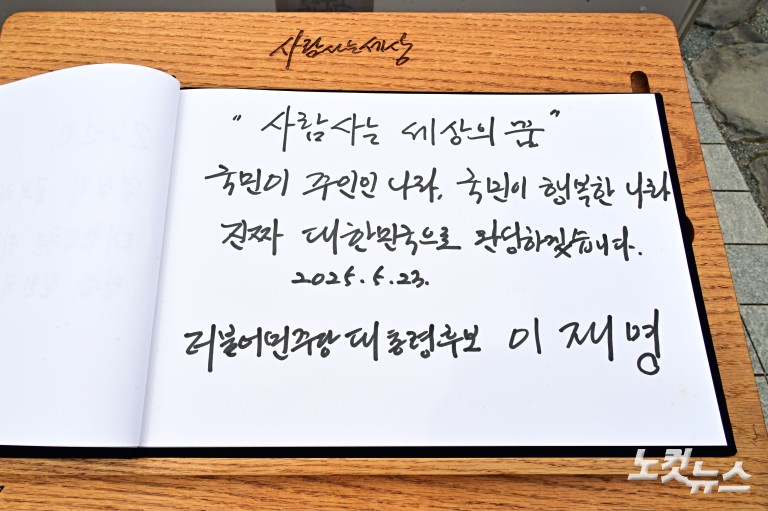 사람사는세상
"사람사는 세상의 꿈"
국민이 주인인 나라, 국민이 행복한 나라
진짜 대한민국으로 완성하겠습니다.
2025.5.23.
더불어민주당 대통령후보 이재명
노컷뉴스